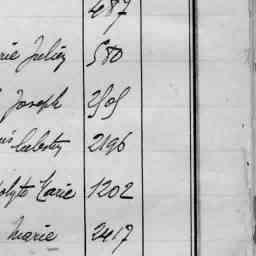 487
rie Julien 580
Joseph 2505
Celestin 2196
olyte Marie 1202
Marie 2417